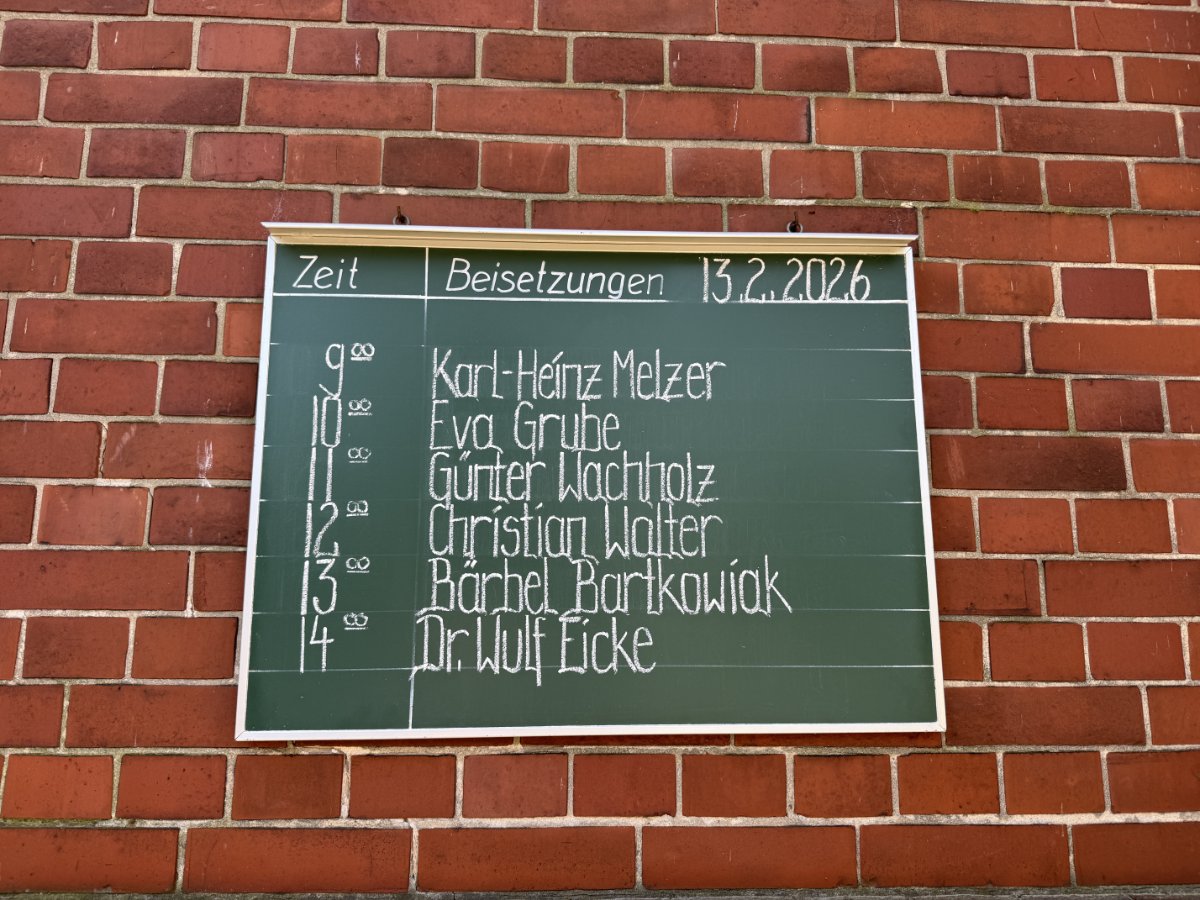 Zeit Beisetzungen 13.2.2026
9 00 Karl-Heinz Melzer
10 00 Eva Grube
11 00 Günter Wachholz
12 00 Christian Walter
13 00 Bärbel Bartkowiak
14 00 Dr. Wulf Eicke